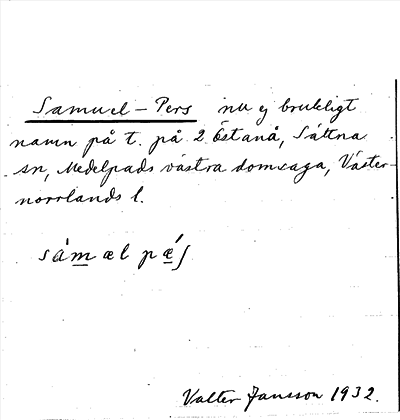 Samuel-Pers nu ej brukligt
namn på t. på 2 Östanå, Sättna
sn, Medelpads västra domsaga, Väster-
norrlands l.
sámæl pǽʃ
Valter Jansson 1932.